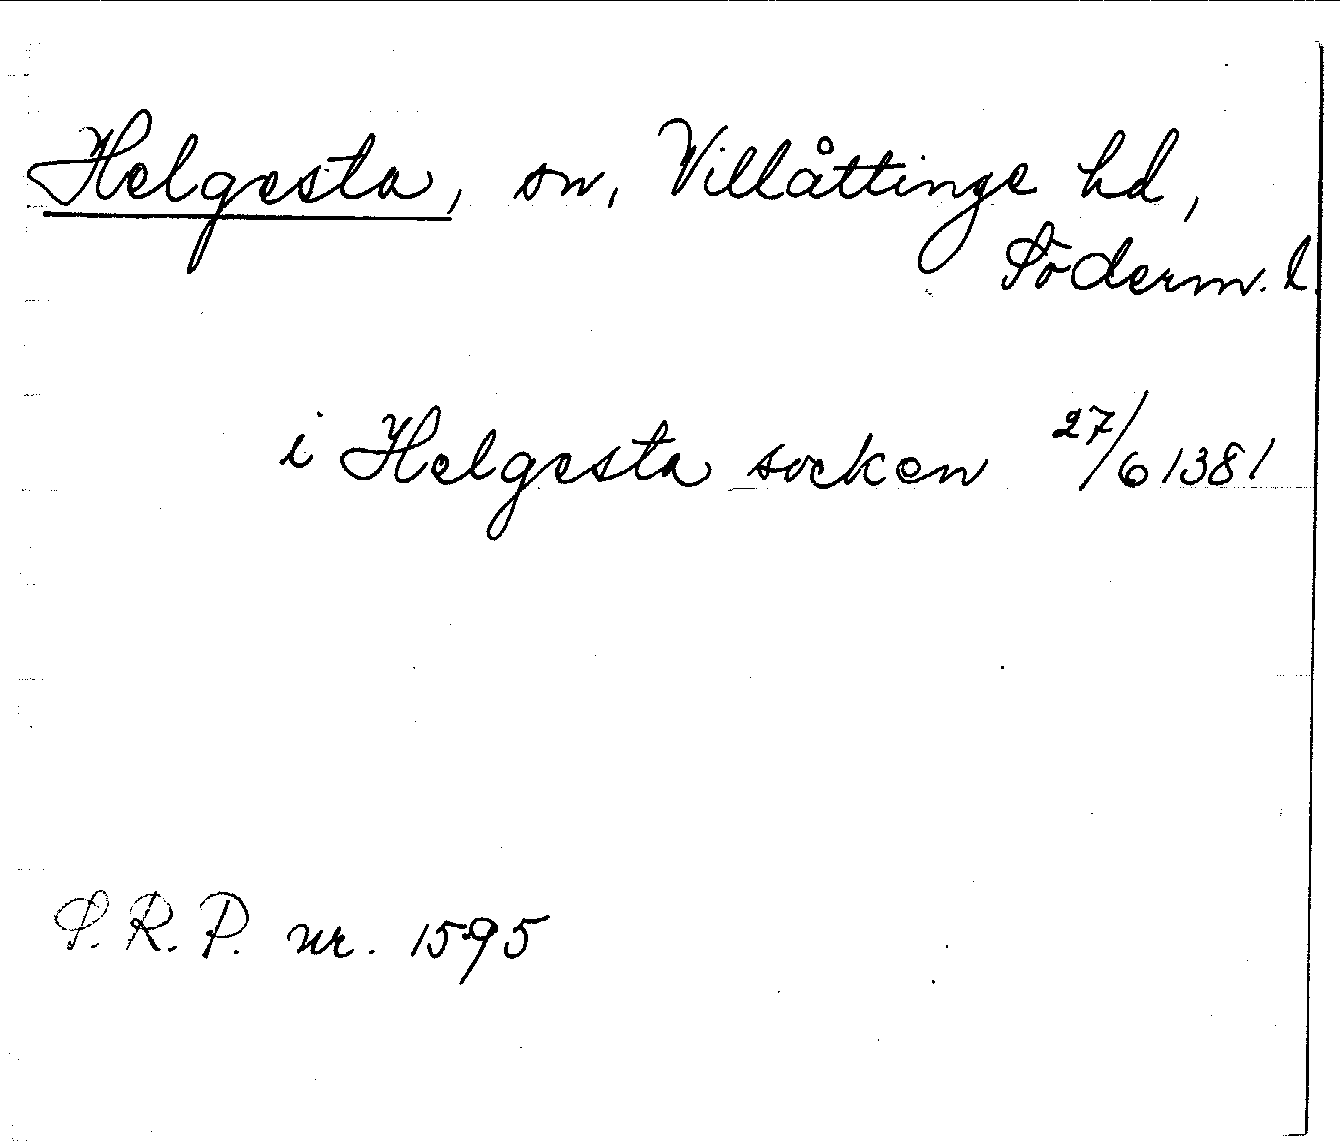 Helgesta, sn, Villåttinge hd,
Söderm. l.
i Helgesta socken 27/6 1381
S.R.P. nr. 1595